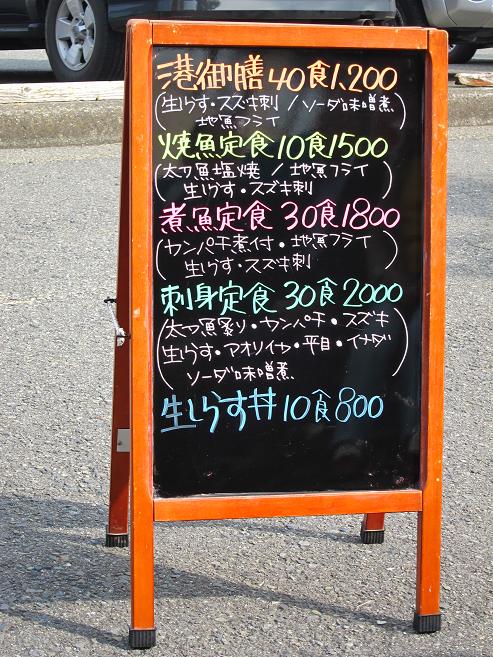 港御膳40食1,200
(生しらす・スズキ刺 / ソーダ味噌煮
地魚フライ)
焼魚定食10食1500
(太刀魚塩焼 / 地魚フライ
生しらす・スズキ刺)
煮魚定食 30食1800
(カンパチ煮付・地魚フライ
生しらす・スズキ刺)
刺身定食 30食2000
(太刀魚炙り・カンパチ・スズキ
生しらす・アオリイカ・平目・イナダ
ソーダ味噌煮)
生しらす丼 10食800